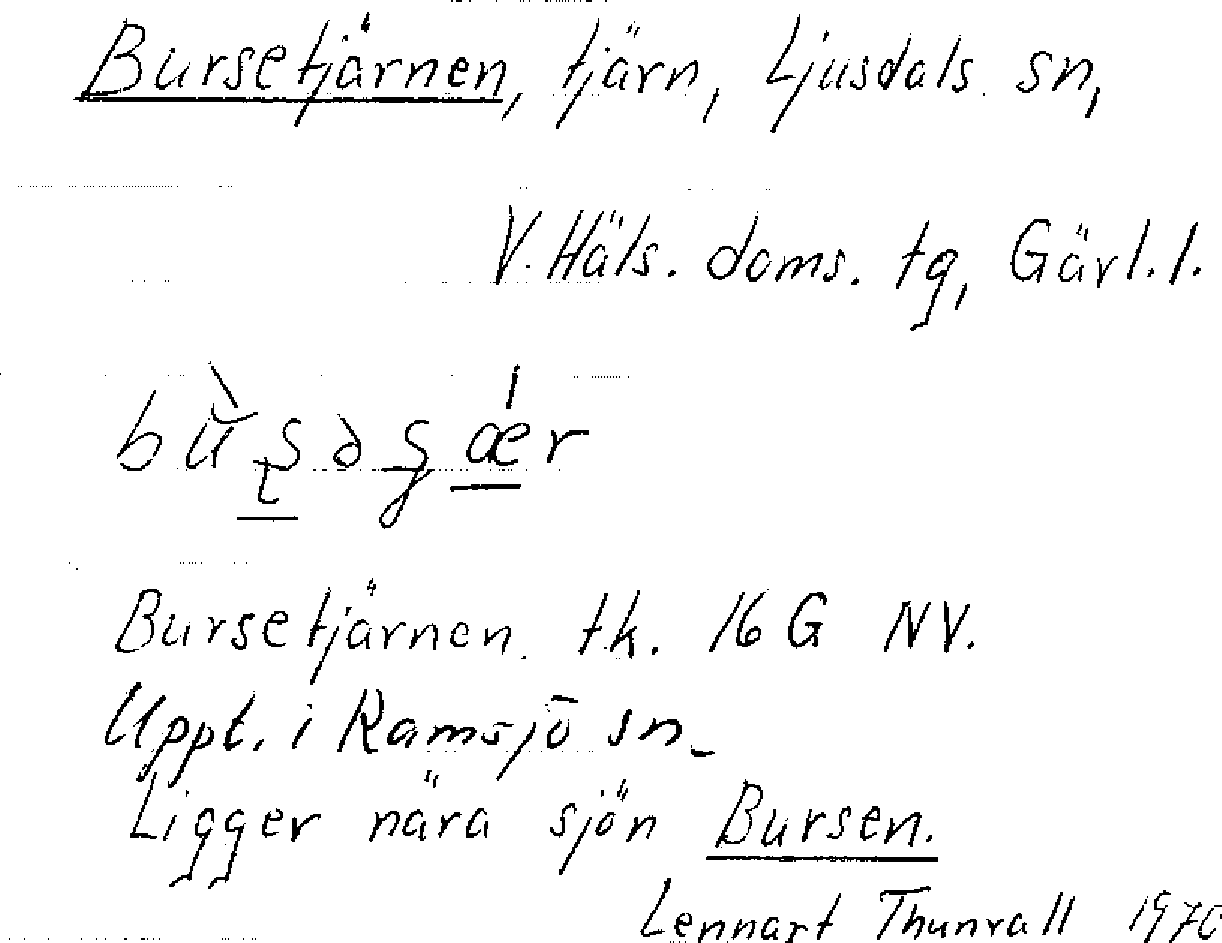 Bursetjärnen, tjärn, Ljusdals sn,
V. Häls. doms. tg, Gävl. l.
Bursetjärnen. tk. 16 G NV.
Uppt. i Ramsjö sn.
Ligger nära sjön Bursen.
Lennart Thunvall 1970